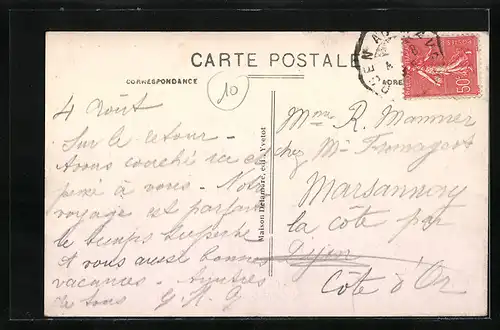 CARTE POSTALE
CORRESPONDANCE
ADRE
10
50
4 Août
Sur le retour -
Avons couché ici et
pensé à vous - Notre
voyage est parfait
le temps superbe
et vous aussi bonnes
vacances - Amitiés
de tous G. H. G
Maison Delamare, édit., Yvetot
Mme R. Mammer
chez Mr Fromageot
Marsannay
la côte par
Dijon
Côte d'Or